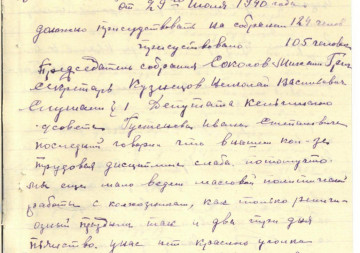 от 29го июля 1940 года.
должно присутствовать на собрании 124 челов
присутствовало 105 человек
Председатель собрания Соколов Михаил Григ
Секретарь Кузнецов Николай Васильевич
Слушали § 1 Депутата Сельского
совета Иван Степанович
последний говорил что в нашем кол-зе
трудовая дисциплина слаба, потому что
мы еще мало ведем массовой политической
работы с колхозниками, как только религи-
озный праздник так и два три дня
пьянство. у нас нет красного уголка